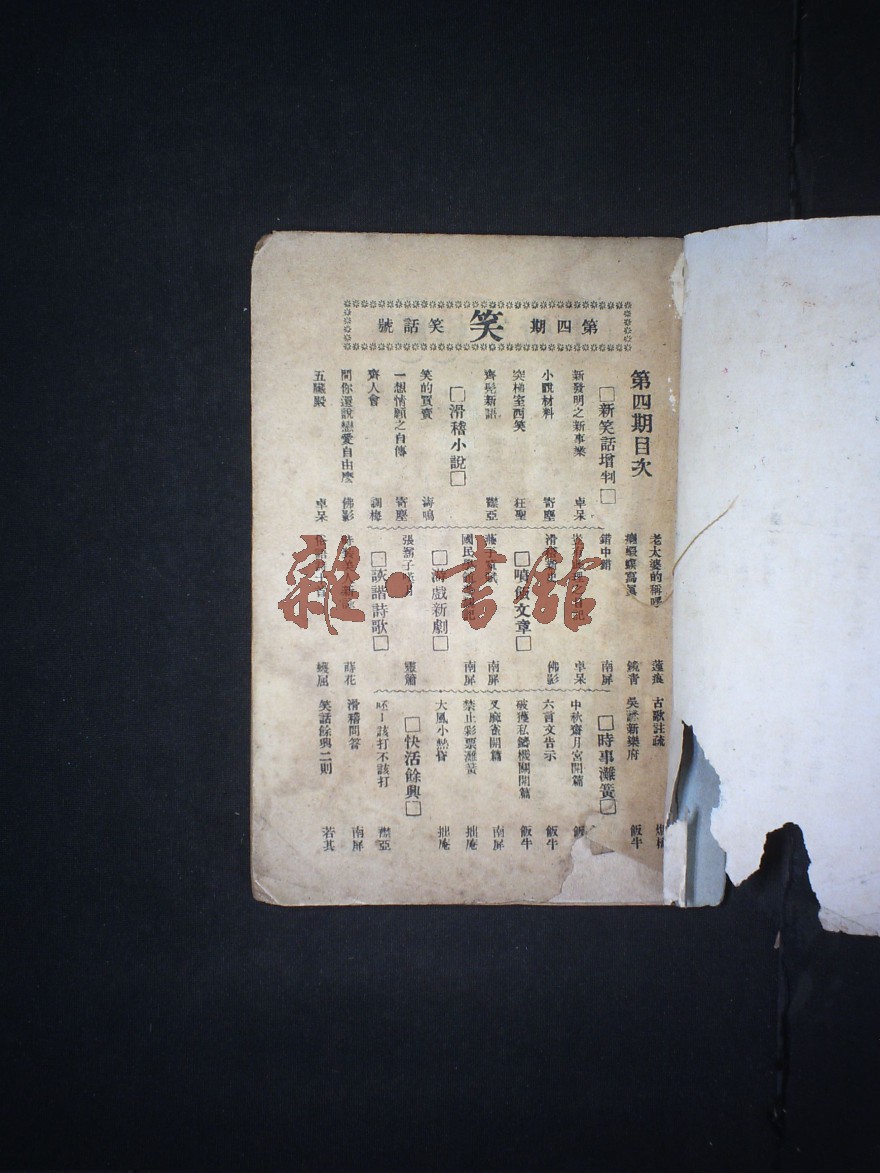 第四期 笑 笑話號
第四期目次
□新笑話增刊□
新發明之新事業 卓呆
小說材料 寄塵
突梯室西笑 枉聖
齊髡新語 襟亞
□滑稽小說□
笑的買賣 海鳴
一想情願之自傳 寄塵
齊人會 調梅
問你還說戀愛自由麼 佛影
五臟殿 卓呆
老太婆的稱呼 蓮痕
癩蝦蟆寫真 鏡青
錯中錯 南屏
卓呆
滑稽 佛影
□噴飯文章□
南屏
國民 南屏
□游戲新劇□
張鬍子 靈簫
□詼諧詩歌□
新 蒔花
蠖屈
古歌註疏
吳諺新樂府 飯牛
□時事灘簧□
中秋齋月宮開篇 飯
六言文告示 飯牛
破獲私鑄機關開篇 飯牛
叉麻雀開篇 南屏
禁止彩票灘簧 拙庵
大風小熱昏 拙庵
□快活餘興□
呸！該打不該打 襟亞
滑稽問答 南屏
笑話餘興二則 若其
雜·書館